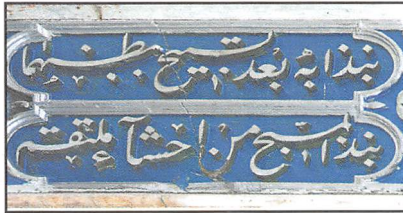 نبذا به بعد تسبيح ببطنهما
نبذ المسبح من احشآء ملتقم